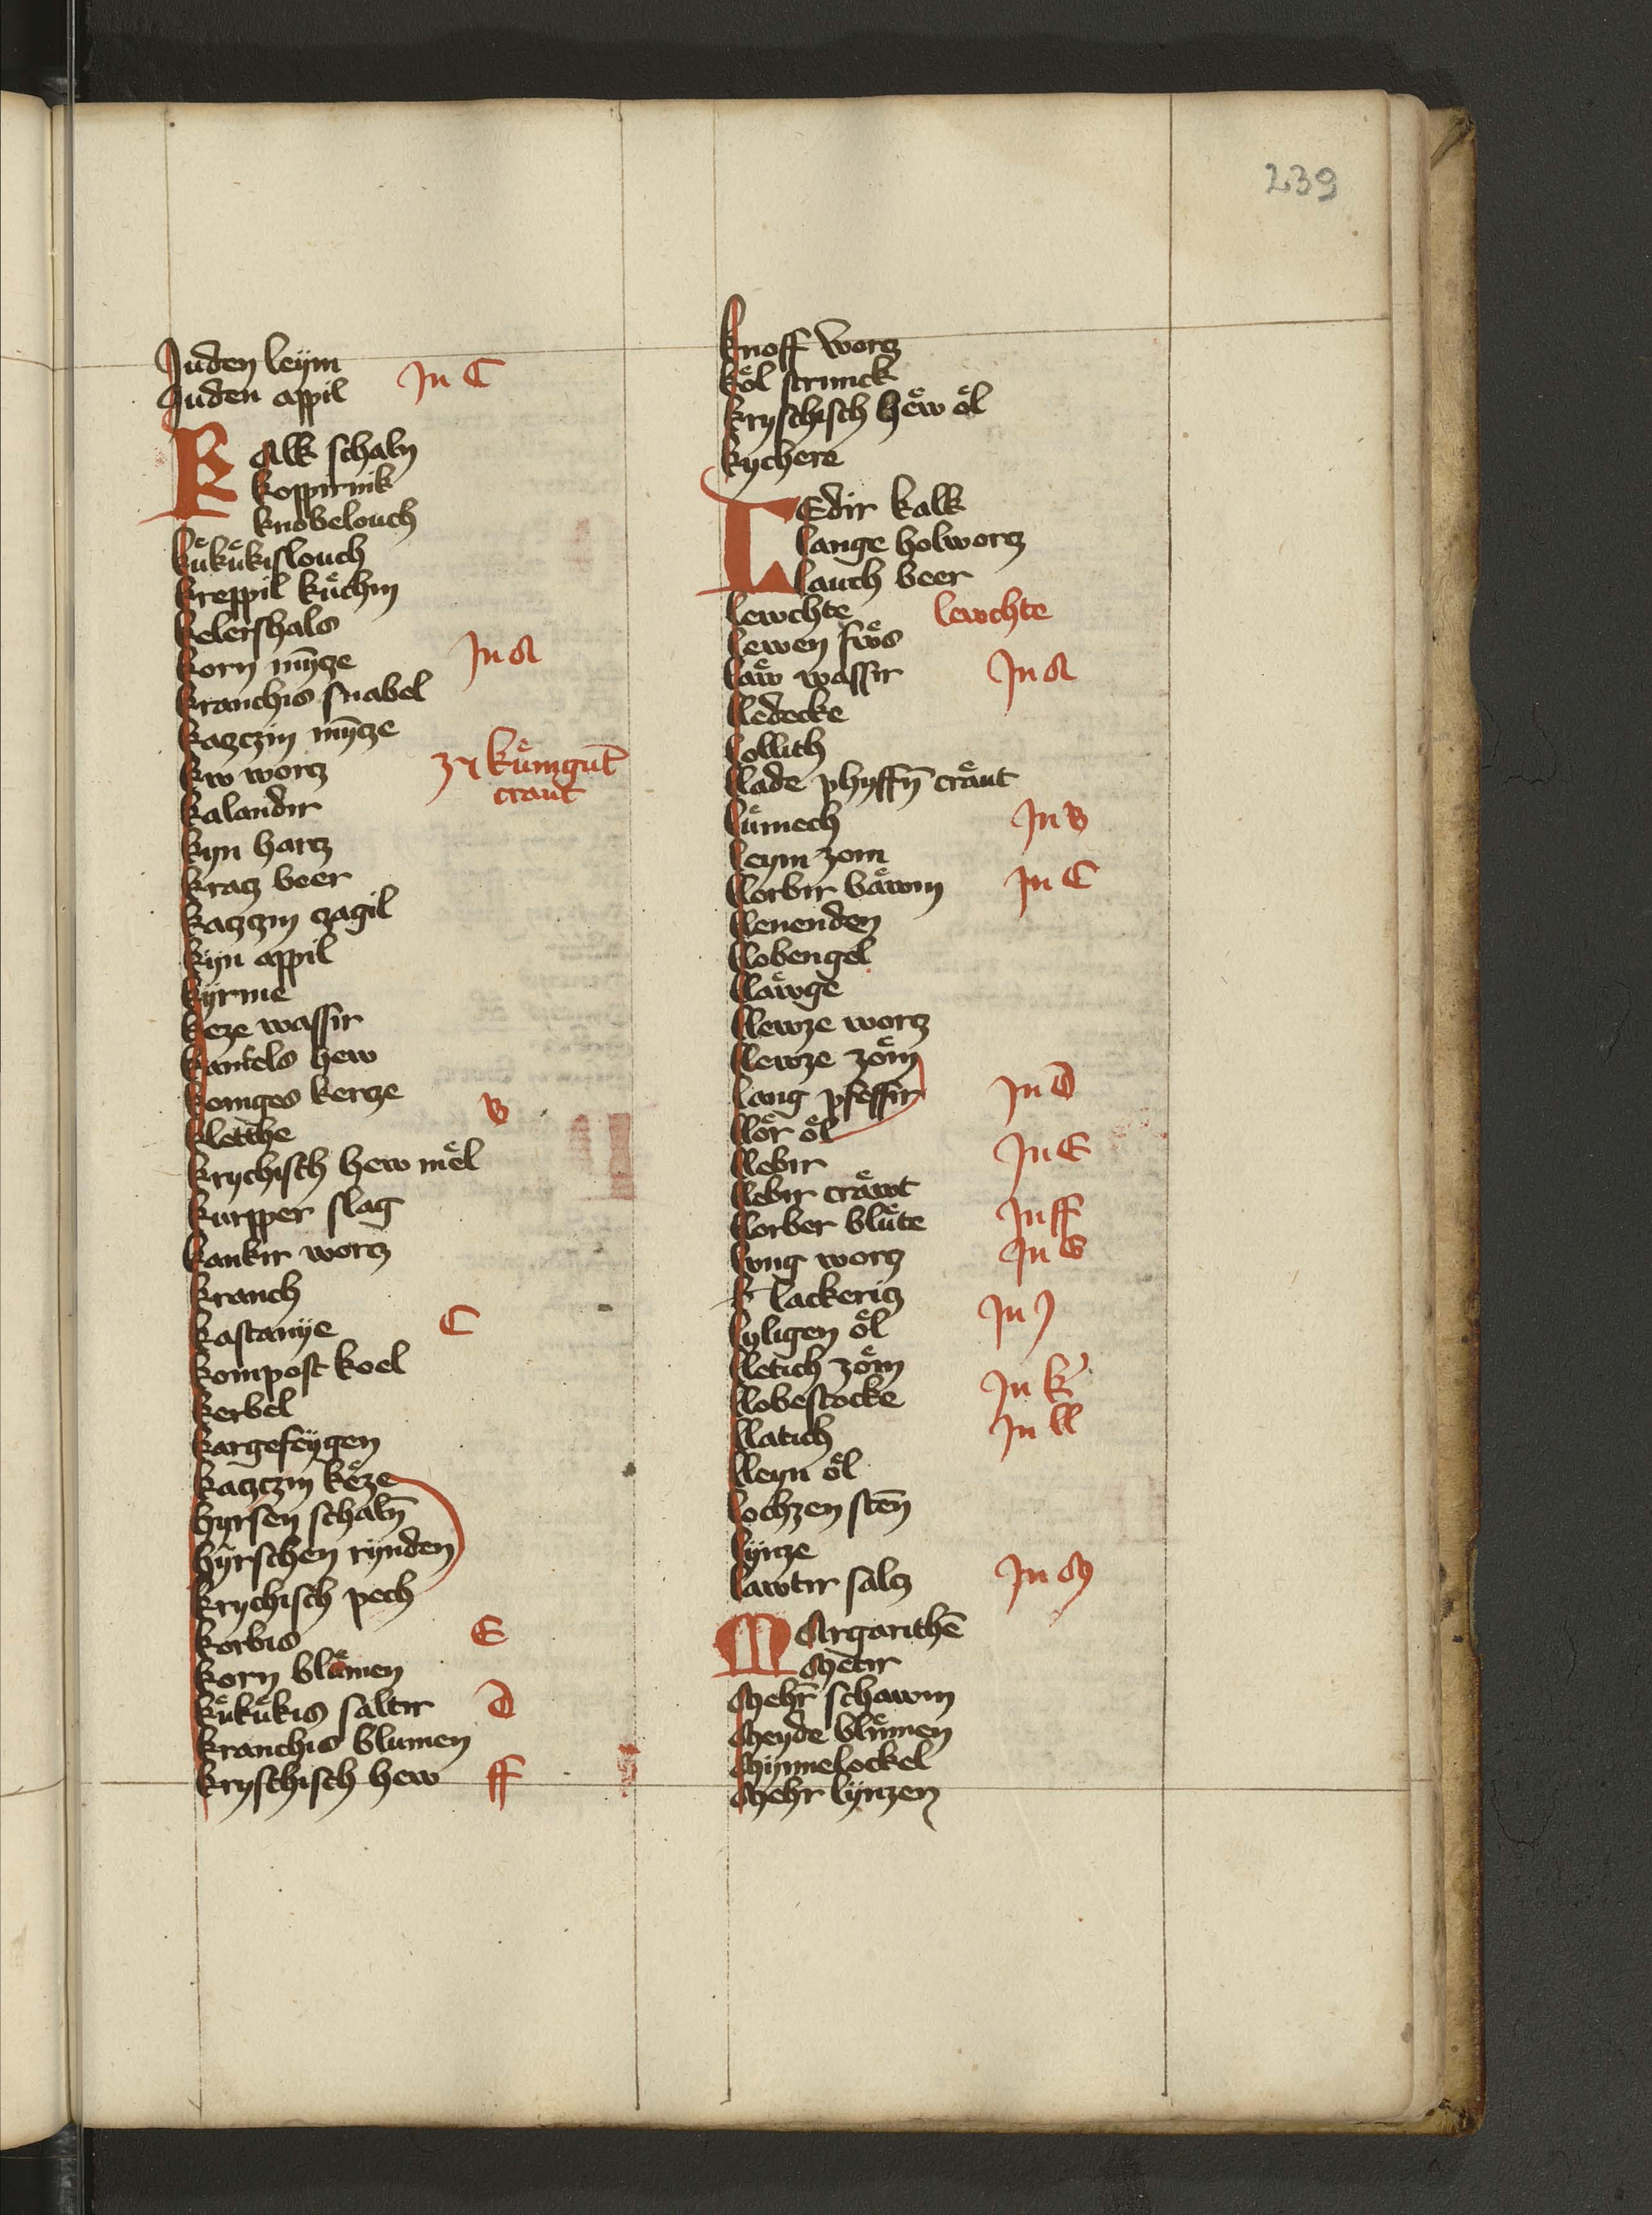 239
Juden leÿm
Juden appil In C
KAlk schaln
koppirnik
knobelouch
kuͤkuͤkislouch
kreppil kuͤchin
kelershals
korn mÿ̄tze In A
kranchis snabel
katzczin mÿ̄tze
kw wortz kuͤnigut̄
kalandir craut
kyn hartz
kratz beer
katzczin czagil
kÿn appil
kÿrme
keze wassir
kamels hew
koniges kertze B
kletthe
krychisch hew meͤl
kurpper slag
kankir wortz
kranch
kastanÿe C
kompost koel
kerbel
kargefeÿgen
katzczin keͤze
hÿrsen schaln̄
hÿrschen rÿnden
krychisch pech
korbis E
korn bluͤmen
kuͤkuͤkis saltir D
kranchis blumen
krysthisch hew ff
knoff wortz
koͤl strunck
krysthisch heͤw oͤl
kychere
LEdir kalk
lange holwortz
lauch beer
lewchte lewchte
lewen fwͤs
laͤw wassir In A
lledecke
lollith
llade phyffn̄ craͤut
luͤmech In B
leym zom
llorbir baͤwm In C
llenenden
llobengel
llaͤwge
llewze wortz
llewze zoͤm
lang pfeffir In D
lloͤr oͤl
llebir In E
llebir craͤwt
llorber bluͤte In ff
lvng wortz In G
lackeritz
lyligen oͤl In J
lletich zoͤm
llobestocke In K
llatich In ll
lleyn oͤl
lochzen sten̄
lÿnze
lawtir saltz In M
MArgarithē
Metir
Mehr̄ schawm
Meyde bluͤmen
Mÿnnelockel
Mehr lÿnzen